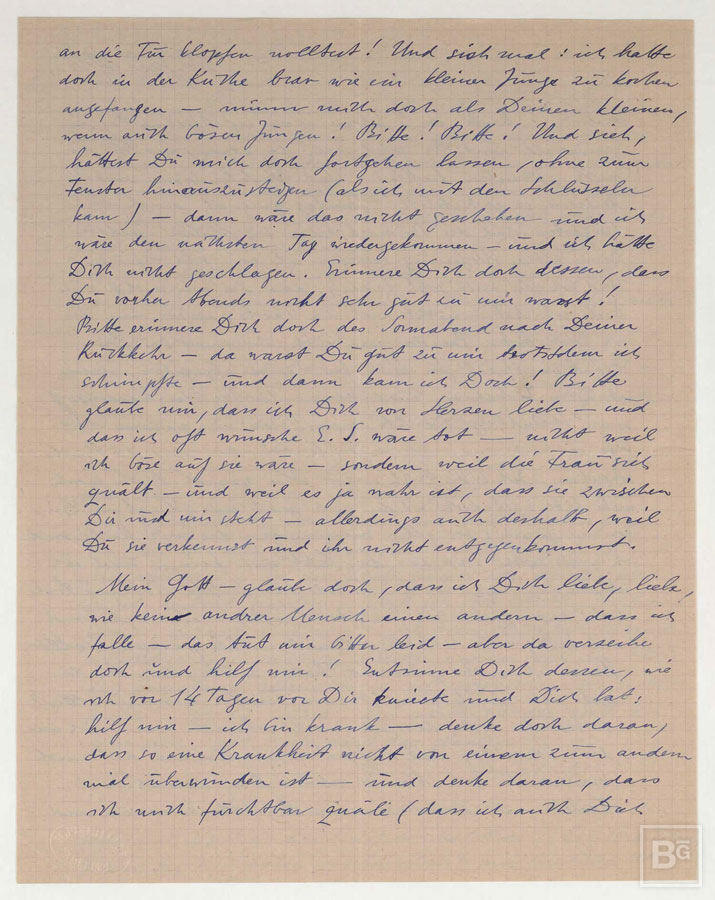 an die Tür klopfen wolltest! Und sieh mal: ich hatte
doch in der Küche brav wie ein kleiner Junge zu kochen
angefangen — nimm mich doch als Deinen kleinen,
wenn auch bösen Jungen! Bitte! Bitte! Und sieh,
hättest Du mich doch fortgehen lassen, ohne zum
Fenster hinauszusteigen (als ich mit den Schlüsseln
kam) — dann wäre das nicht geschehen und ich
wäre den nächsten Tag wiedergekommen — und ich hätte
Dich nicht geschlagen. Erinnere Dich doch dessen, dass
Du vorher Abends nicht sehr gut zu mir warst!
Bitte erinnere Dich doch des Sonnabend nach Deiner
Rückkehr — da warst Du gut zu mir trotzdem ich
schimpfte — und dann kam ich Doch! Bitte
glaube mir, dass ich Dich von Herzen liebe — und
dass ich oft wünsche E. S. wäre tot — nicht weil
ich böse auf sie wäre — sondern weil die Frau sich
quält — und weil es ja wahr ist, dass sie zwischen
Dir und mir steht — allerdings auch deshalb, weil
Du sie verkennst und ihr nicht entgegenkommst.
Mein Gott — glaube doch, dass ich Dich liebe, liebe,
wie kein andrer Mensch einen andern — dass ich
falle — das tut mir bitter leid — aber da verzeihe
doch und hilf mir! Entsinne Dich dessen, wie
ich vor 14 Tagen vor Dir kniete und Dich bat:
hilf mir — ich bin krank — denke doch daran,
dass so eine Krankheit nicht von einem zum andern
mal überwunden ist — und denke daran, dass
ich mich furchtbar quäle (dass ich auch Dich
BG